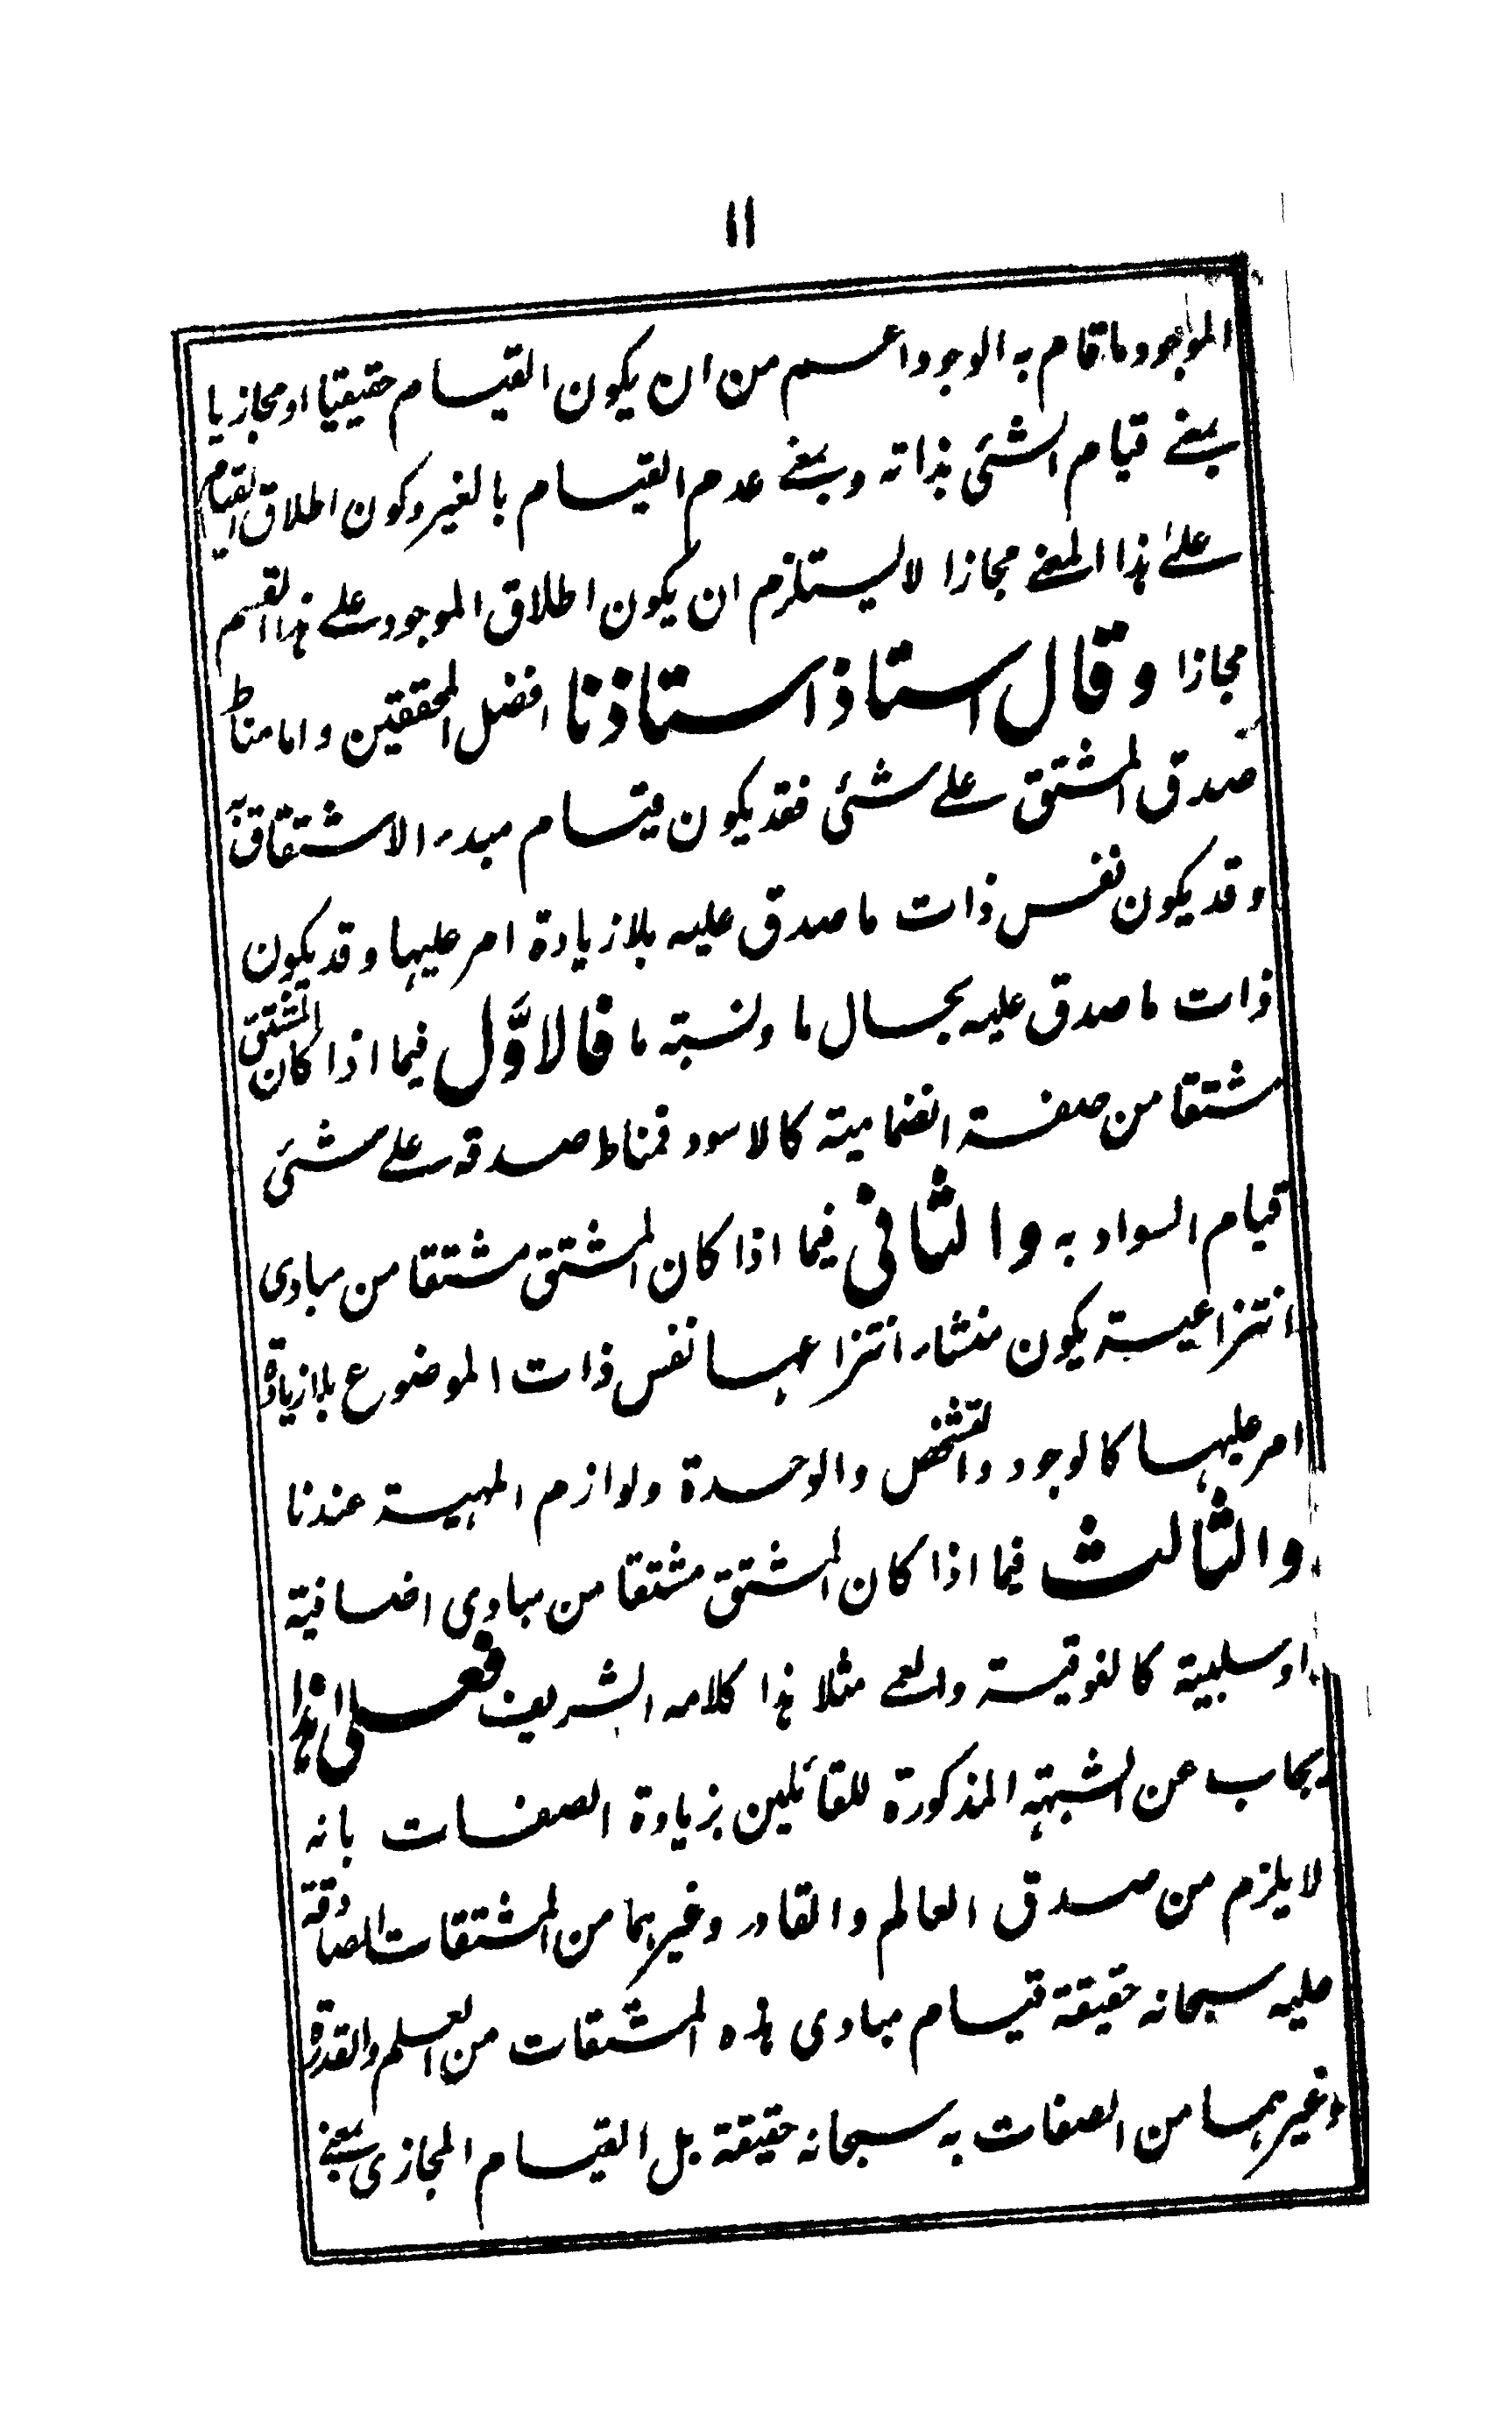 ١١
الموجود ما قام به الوجود اعم من ان يكون القيام حقيقيا او مجازيا
بمعنے قيام الشئ بذاته وبمعنے عدم القيام بالغير وكون اطلاق القيام
علے هذا المعنے مجازا لا يستلزم ان يكون اطلاق الموجود علے هذا القسم
مجازا وقال استاذ استاذنا افضل المحققين واما مناط
صدق المشتق علے شئ فقد يكون قيام مبدء الاشتقاق به
وقد يكون نفس ذات ما صدق عليه بلا زيادة امر عليها وقد يكون
ذات ما صدق عليه بحال ما ونسبة ما فالاوَّل فيما اذا كان المشتق
مشتقا من صفة انضمامية كالاسود فمناط صدقه علے شئ
قيام السواد به والثانی فيما اذا كان المشتق مشتقا من مبادی
انتزاعية يكون منشاء انتزاعها نفس ذات الموضوع بلا زيادة
امر عليها كالوجود والتشخص والوحدة ولوازم المهية عندنا
والثالث فيما اذا كان المشتق مشتقا من مبادی اضافية
او سلبية كالفوقية والعمے مثلا هذا كلامه الشريف فعلی هذا
يجاب عن الشبهة المذكورة للقائلين بزيادة الصفات بانه
لا يلزم من صدق العالم والقادر وغيرهما من المشتقات الصادقة
عليه سبحانه حقيقة قيام مبادی هذه المشتقات من العلم والقدرة
وغيرهما من الصفات به سبحانه حقيقة بل القيام المجازی بمعنے